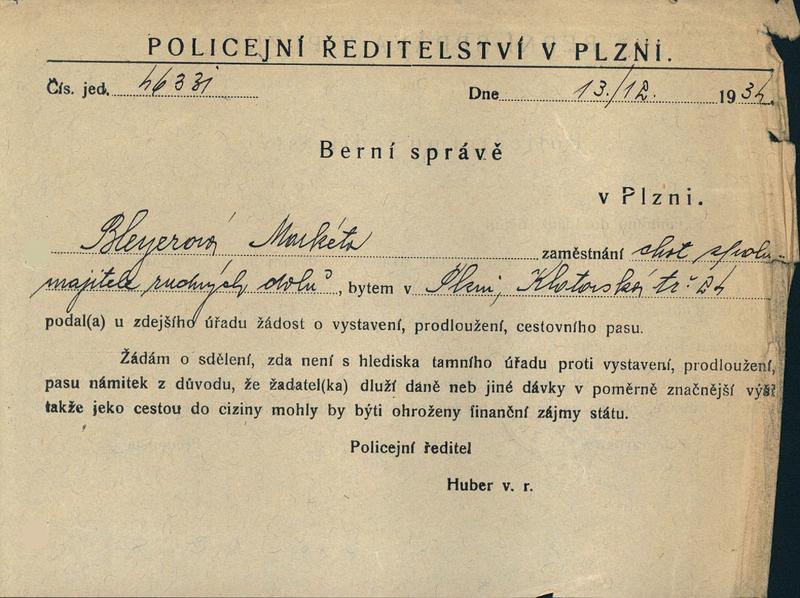 POLICEJNÍ ŘEDITELSTVÍ V PLZNI.
Čís. jed. 46331 Dne 13./12. 1934
Berní správě
v Plzni.
Bleyerová Markéta zaměstnání choť spolu-
majitele rudných dolů, bytem v Plzni, Klatovská tř. 24
podal(a) u zdejšího úřadu žádost o vystavení, prodloužení, cestovního pasu.
Žádám o sdělení, zda není s hlediska tamního úřadu proti vystavení, prodloužení,
pasu námitek z důvodu, že žadatel(ka) dluží daně neb jiné dávky v poměrně značnější výši
takže jeko cestou do ciziny mohly by býti ohroženy finanční zájmy státu.
Policejní ředitel
Huber v. r.